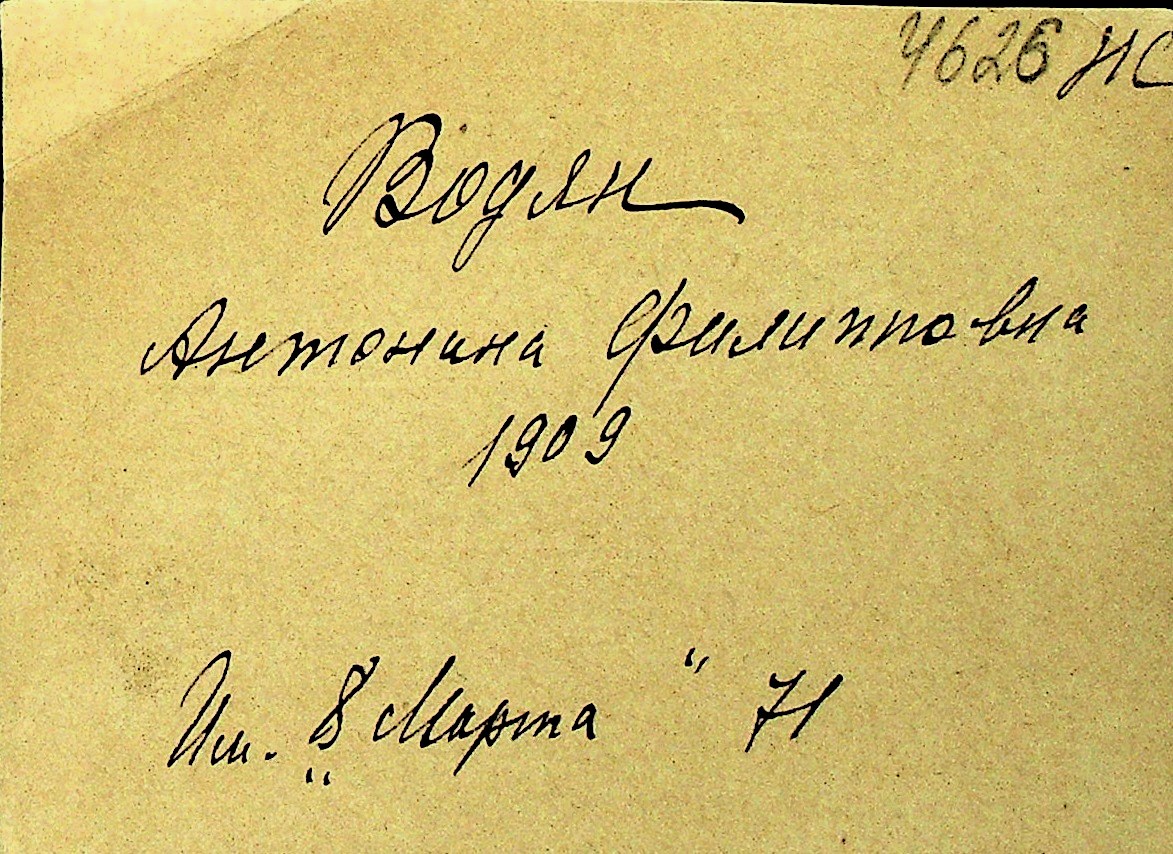 4626 НС
Водян
Антонина Филипповна
1909
Им. „8 Марта“ 71